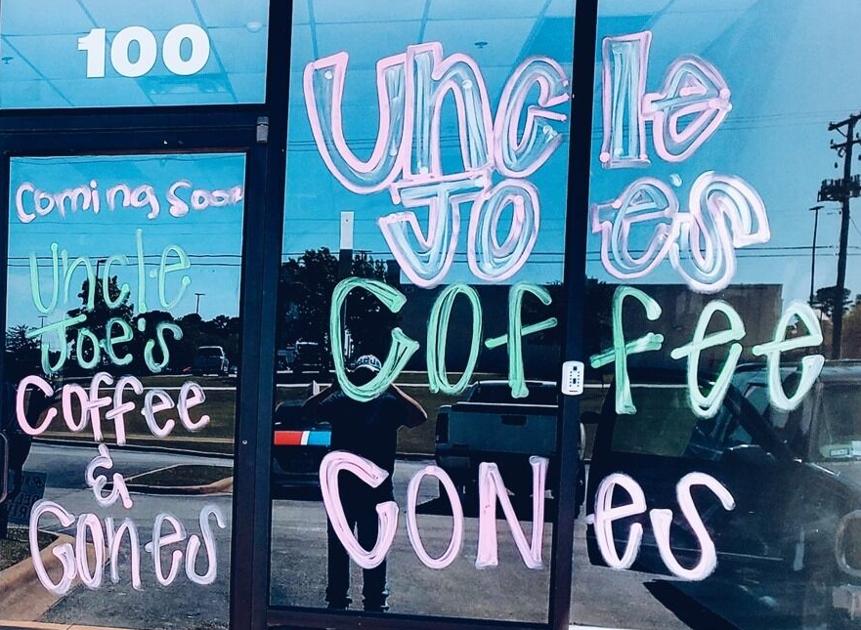 100
Coming Soon
Uncle
Joe's
Coffee
&
Cones
Uncle
Joe's
Coffee
Cones